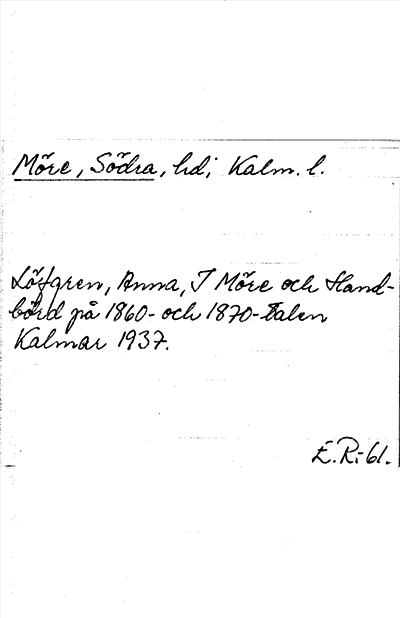 Möre, Södra, hd; Kalm. l.
Löfgren, Anna, I Möre och Hand-
börd på 1860- och 1870-talen
Kalmar 1937.
E.R.-61.